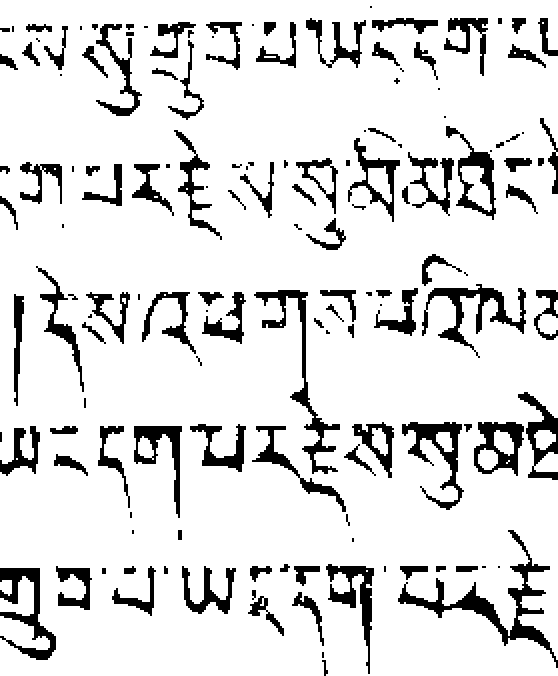 ས་སུ་གྲུབ་པ་ཡང་དག་
དག་པར་རྗེས་སུ་མི་མཐོང་
།དེས་འཕགས་པའི་ལམ
ཡང་དག་པར་རྗེས་སུ་མཐོ
གྲུབ་པ་ཡང་དག་པར་རྗེ